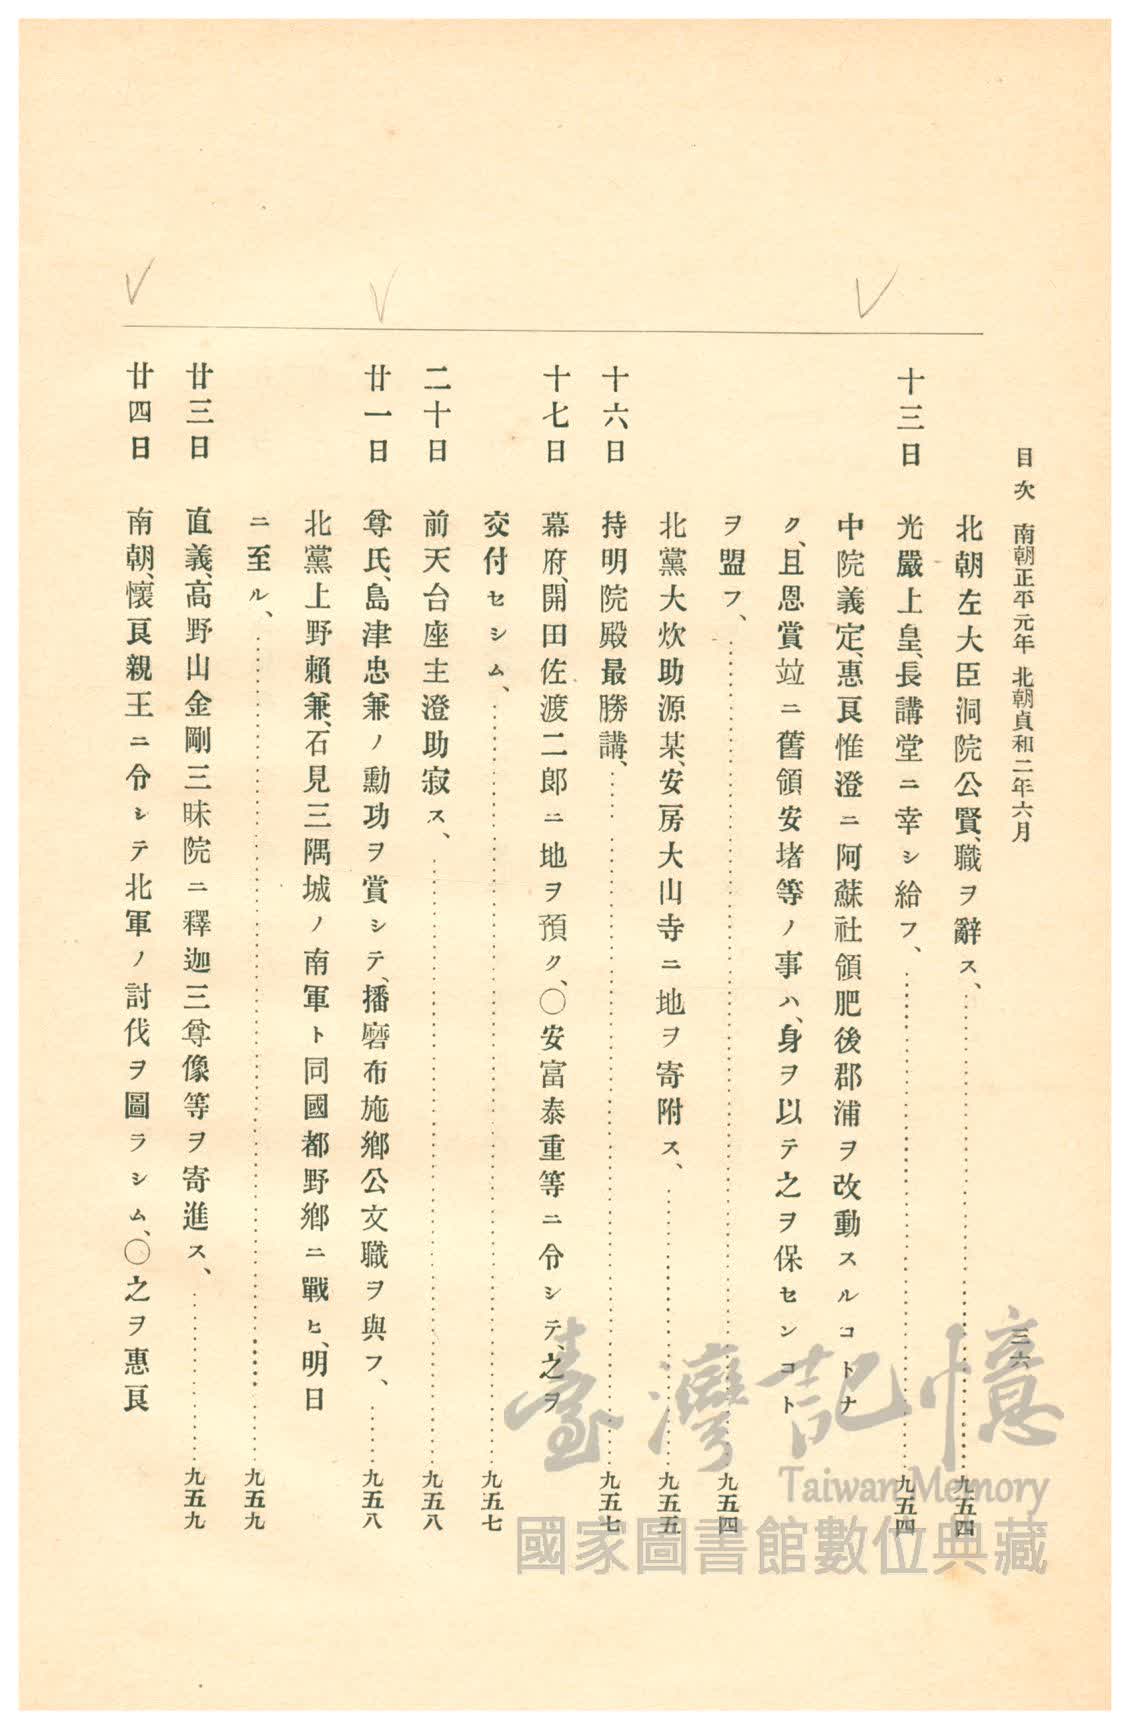 目次　南朝正平元年　北朝貞和二年六月　三六
北朝左大臣洞院公賢、職ヲ辭ス、……九五四
十三日　光嚴上皇、長講堂ニ幸シ給フ、……九五四
中院義定、惠良惟澄ニ阿蘇社領肥後郡浦ヲ改動スルコトナ
ク、且恩賞竝ニ舊領安堵等ノ事ハ、身ヲ以テ之ヲ保センコト
ヲ盟フ、……九五四
北黨大炊助源某、安房大山寺ニ地ヲ寄附ス、……九五五
十六日　持明院殿最勝講、……九五七
十七日　幕府、開田佐渡二郎ニ地ヲ預ク、○安富泰重等ニ令シテ、之ヲ
交付セシム、……九五七
二十日　前天台座主澄助寂ス、……九五八
廿一日　尊氏、島津忠兼ノ勳功ヲ賞シテ、播磨布施鄉公文職ヲ與フ、……九五八
北黨上野賴兼、石見三隅城ノ南軍ト同國都野鄉ニ戰ヒ、明日
ニ至ル、……九五九
廿三日　直義、高野山金剛三昧院ニ釋迦三尊像等ヲ寄進ス、……九五九
廿四日　南朝、懷良親王ニ令シテ北軍ノ討伐ヲ圖ラシム、○之ヲ惠良
臺灣記憶
Taiwan Memory
國家圖書館數位典藏